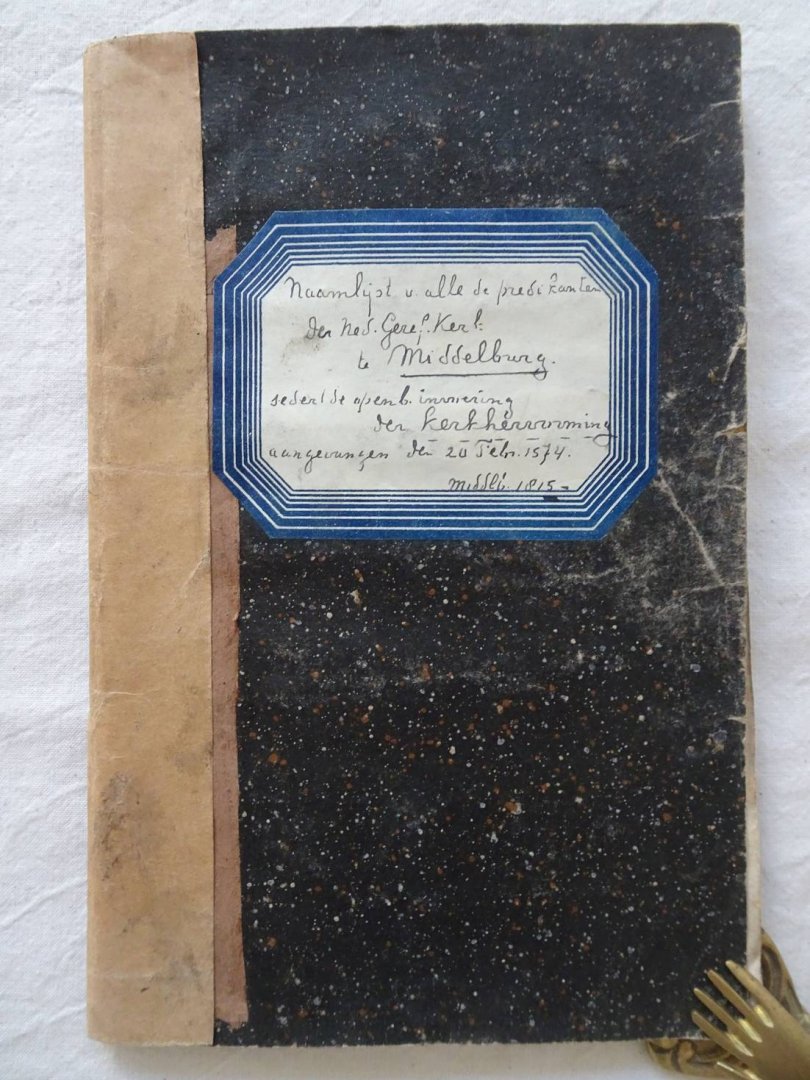 Naamlijst v. alle de predikanten
der Ned. Geref. Kerk
te Middelburg.
sedert de openb. invoering
der kerkhervorming
aangevangen den 20 Febr. 1574.
Middlb. 1815-